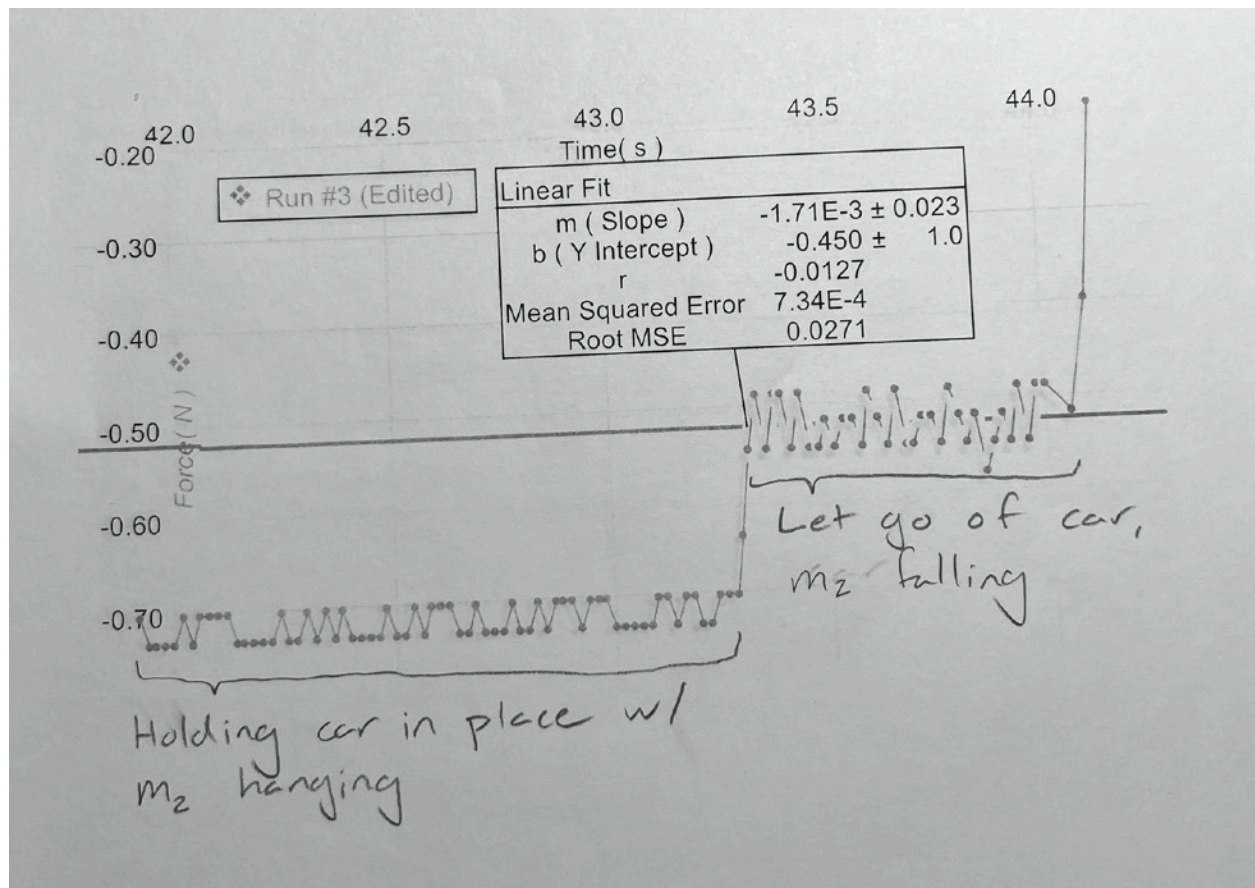 42.0 42.5 43.0 43.5 44.0
Time( s )
-0.20
-0.30
-0.40
-0.50
-0.60
-0.70
Force( N )
Run #3 (Edited)
Linear Fit
m ( Slope ) -1.71E-3 ± 0.023
b ( Y Intercept ) -0.450 ± 1.0
r -0.0127
Mean Squared Error 7.34E-4
Root MSE 0.0271
Let go of car,
m₂ falling
Holding car in place w/
m₂ hanging